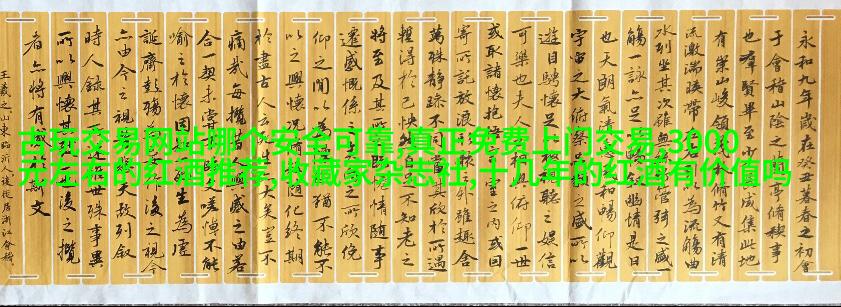 古玩交易网站哪个安全可靠,真正免费上门交易,3000
元左右的红酒推荐,收藏家杂志社,十几年的红酒有价值吗
永和九年歳在癸丑暮春之初會
于會稽山陰之蘭亭脩稧事
也群賢畢至少長咸集此地
有崇山峻領茂林脩竹又有清
流激湍暎帶左右以為流觴曲
水列坐其次雖無管弦之盛一
觴一詠亦足以幽情是日
也天朗氣清和暢仰觀
宇宙之大俯察品類之盛所以
遊目騁懷足以視聽之娛信
可樂也夫人俯仰一世
或取諸懷抱悟言一室之内或因
寄所託放浪之外雖趣舍
萬殊靜躁不同當其欣於所遇
暫得於己快然自足不知老之
將至及其所之情随事
遷感慨係之所欣俛
仰之間以為猶不能不
以之興懷況随化終期
於盡古人云矣豈不
痛哉每攬昔感之由若
合一契未嘗嗟悼不能
喻之於懷固生為虛
誕齊彭殤後之視今
亦由今之視夫故列叙
時人録其世殊事異
所以興懷其後之攬
者亦將有感文
王羲之山東臨沂人後徙居浙江會稽